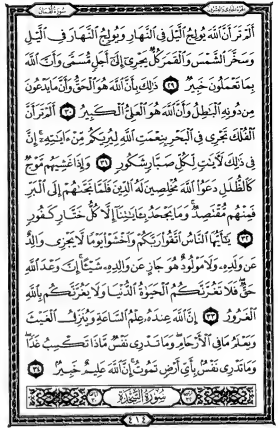 سورة لقمان الجزء الحادي والعشرون
ألم تر أن الله يولج الليل في النهار ويولج النهار في الليل
وسخر الشمس والقمر كل يجري إلى أجل مسمى وأن الله
بما تعملون خبير ٢٩ ذلك بأن الله هو الحق وأن ما يدعون
من دونه الباطل وأن الله هو العلي الكبير ٣٠ ألم تر أن
الفلك تجري في البحر بنعمت الله ليريكم من ءايته إن
في ذلك لأيت لكل صبار شكور ٣١ وإذا غشيهم موج
كالظلل دعوا الله مخلصين له الدين فلما نجىهم إلى البر
فمنهم مقتصد وما يجحد بـايتنا إلا كل ختار كفور
٣٢ يأيها الناس اتقوا ربكم واخشوا يوما لا يجزي والد
عن ولده ولا مولود هو جاز عن والده شيئا إن وعد الله
حق فلا تغرنكم الحيوة الدنيا ولا يغرنكم بالله
الغرور ٣٣ إن الله عنده علم الساعة وينزل الغيث
ويعلم ما في الأرحام وما تدري نفس ماذا تكسب غدا
وما تدري نفس بأي أرض تموت إن الله عليم خبير ٣٤
سورة السجدة
٤١٤